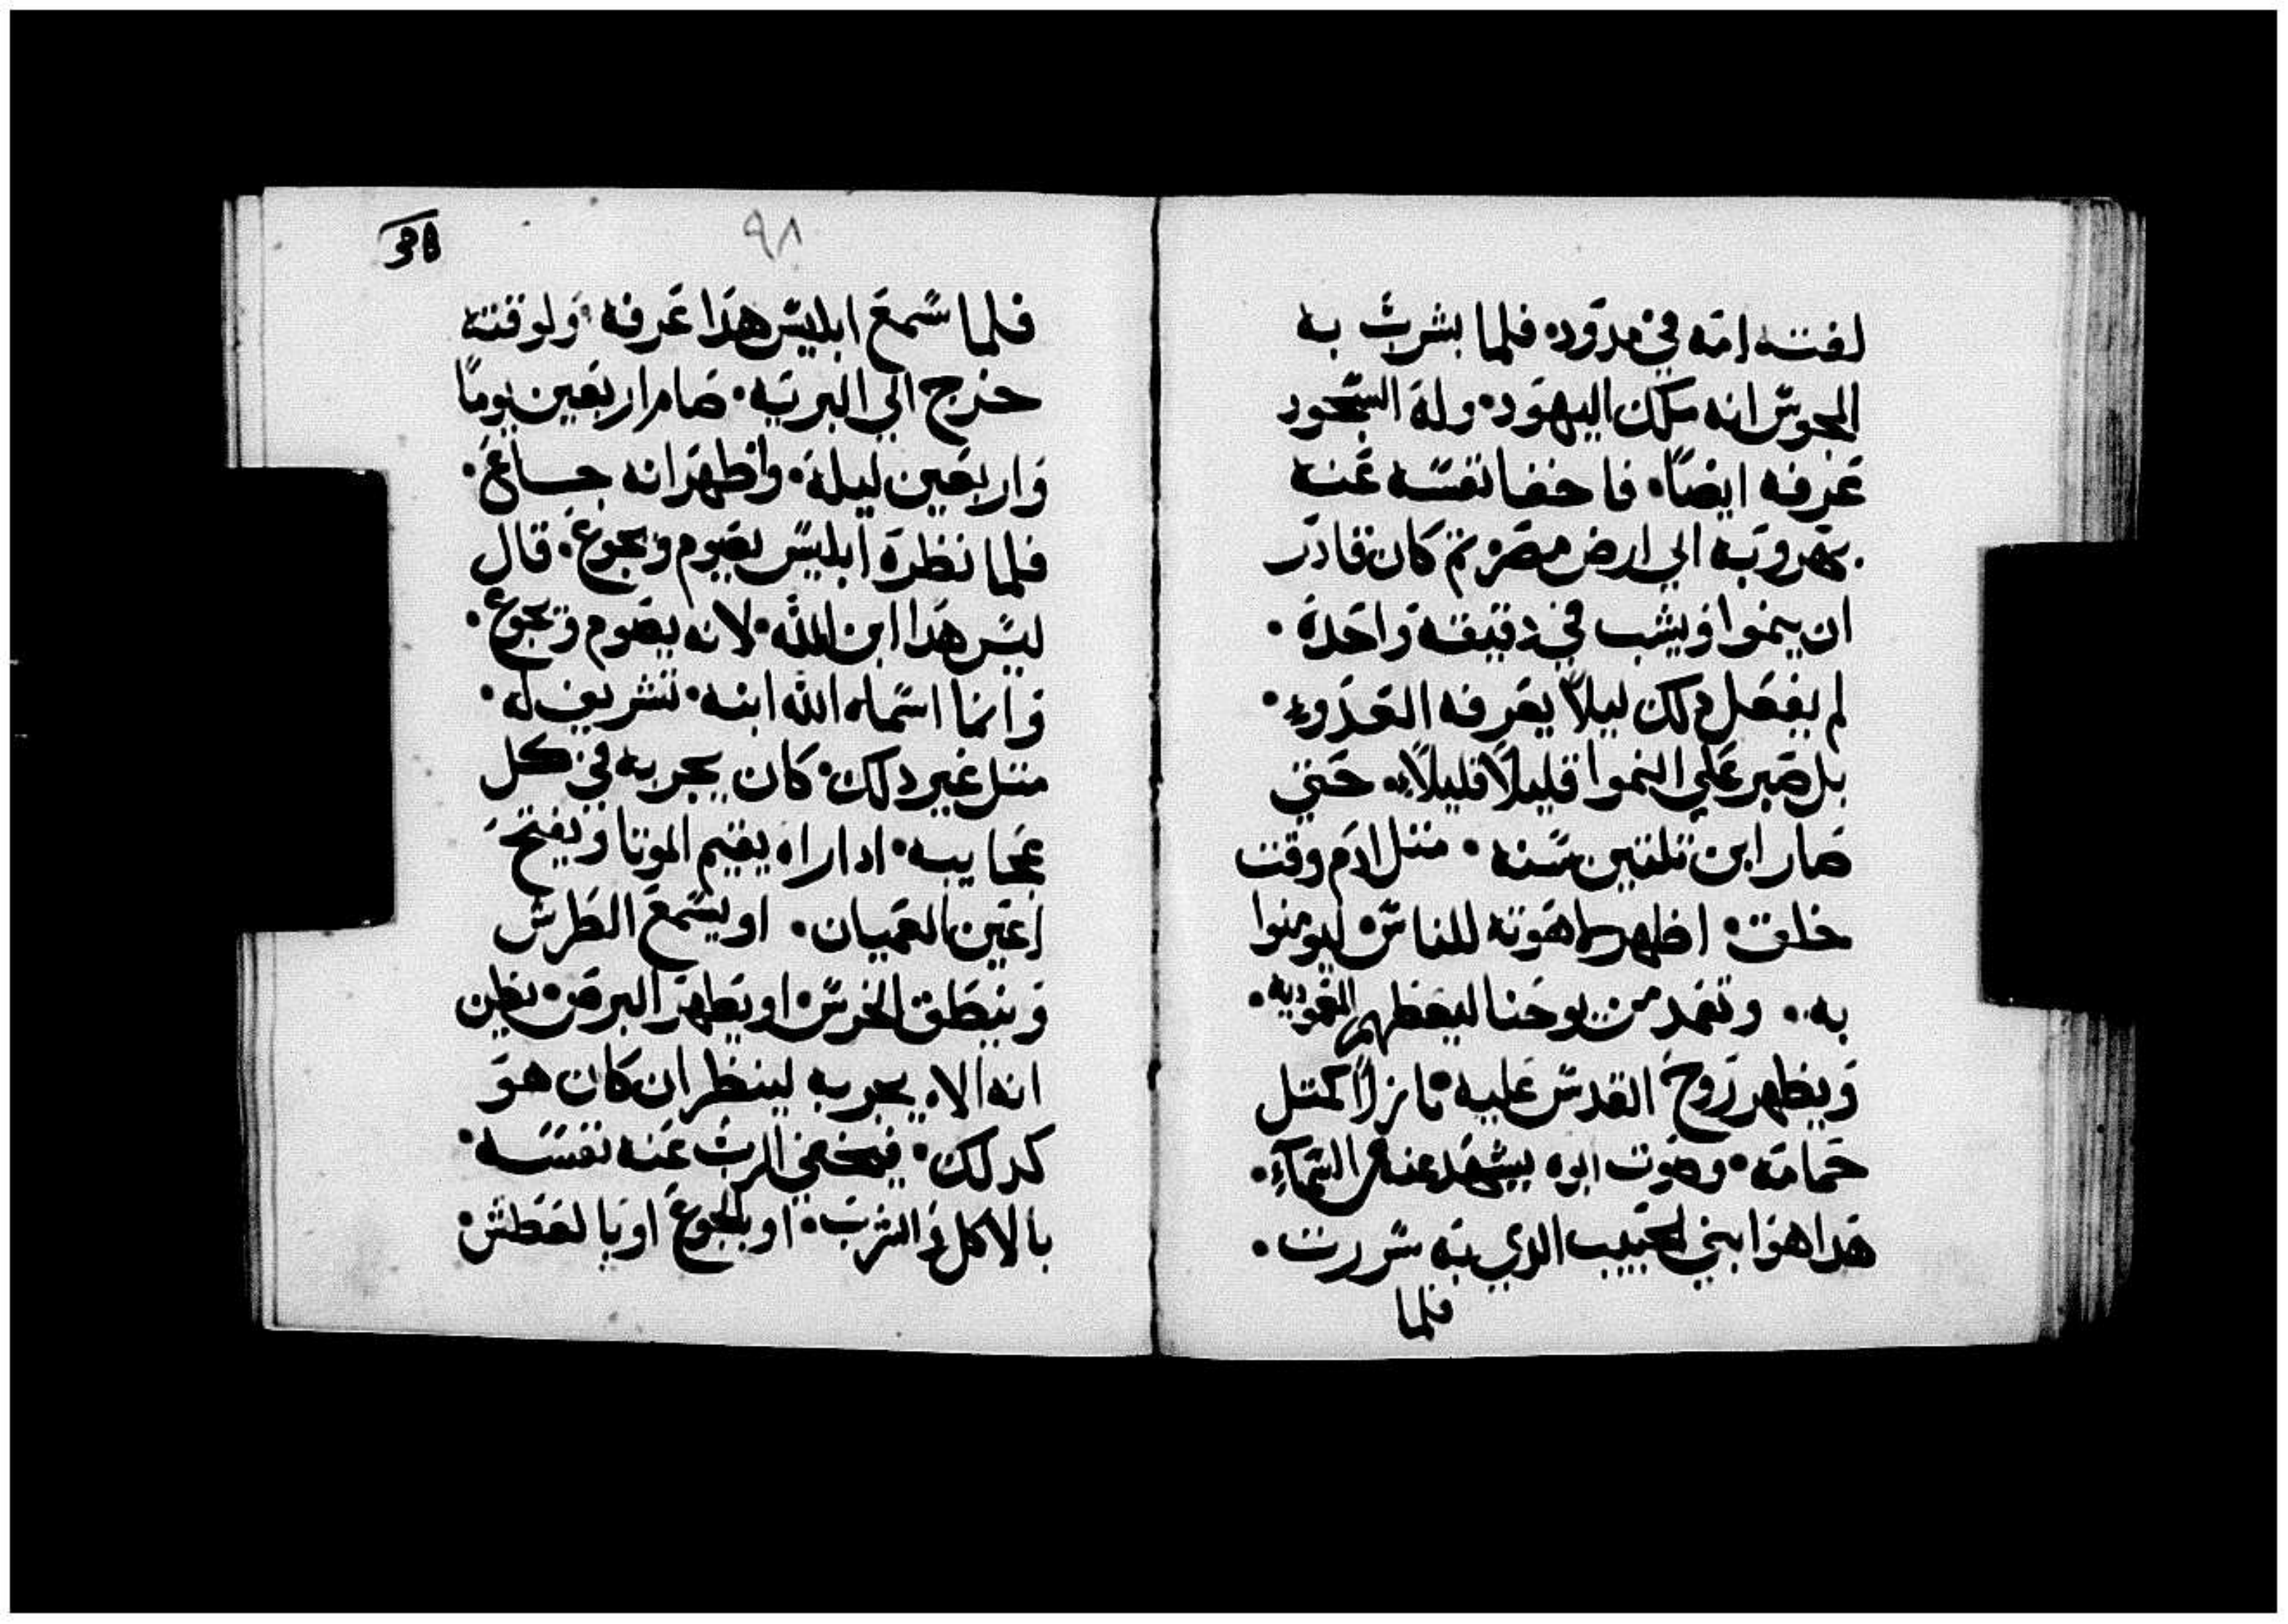 لفته امه في مدود• فلما بشرت به
المجوس انه ملك اليهود• وله السجود
عرفه ايضًا• فاخفا نفسه عنه
بهروبه الي ارض مصر• ثم كان قادر
ان ينموا ويشب في دقيقه واحدة•
لم يفعل دلك ليلا يعرفه العدو•
بل صبر علي النموا قليلاً قليلاً• حتي
صار ابن تلتين سنه• متل ادم وقت
خلق• اظهر لاهوته للناس• ليومنوا
به• وتعمد من يوحنا ليعظهم المعموديه•
ويظهر روح القدس عليه• نازلاً كمتل
حمامه• وصوت ابوه يشهد عنه من السماء•
هدا هو ابني الحبيب الدي به سررت•
فلما
٩٨
فلما سمع ابليس هدا عرفه• ولوقته
خرج الي البريه• صام اربعين يومًا
واربعين ليلة• واظهر انه جاع•
فلما نظره ابليس يصوم ويجوع• قال
ليس هدا ابن الله• لانه يصوم ويجوع•
وانما اسماه الله ابنه• تشريف له•
متل غير دلك• كان يجربه في كل
عجايبه• ادا راه يقيم الموتا ويفتح
اعين العميان• او يسمع الطرش
وينطق الخرس• او يطهر البرص• يظن
انه الاه يجربه لينظر ان كان هو
كدلك• فيخفي الرب عنه نفسه•
بالاكل والشرب• او بالجوع او بالعطش•